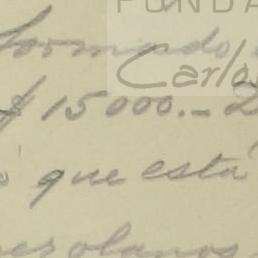 FUNDA
Carlo
formado
$ 15000.-
que está